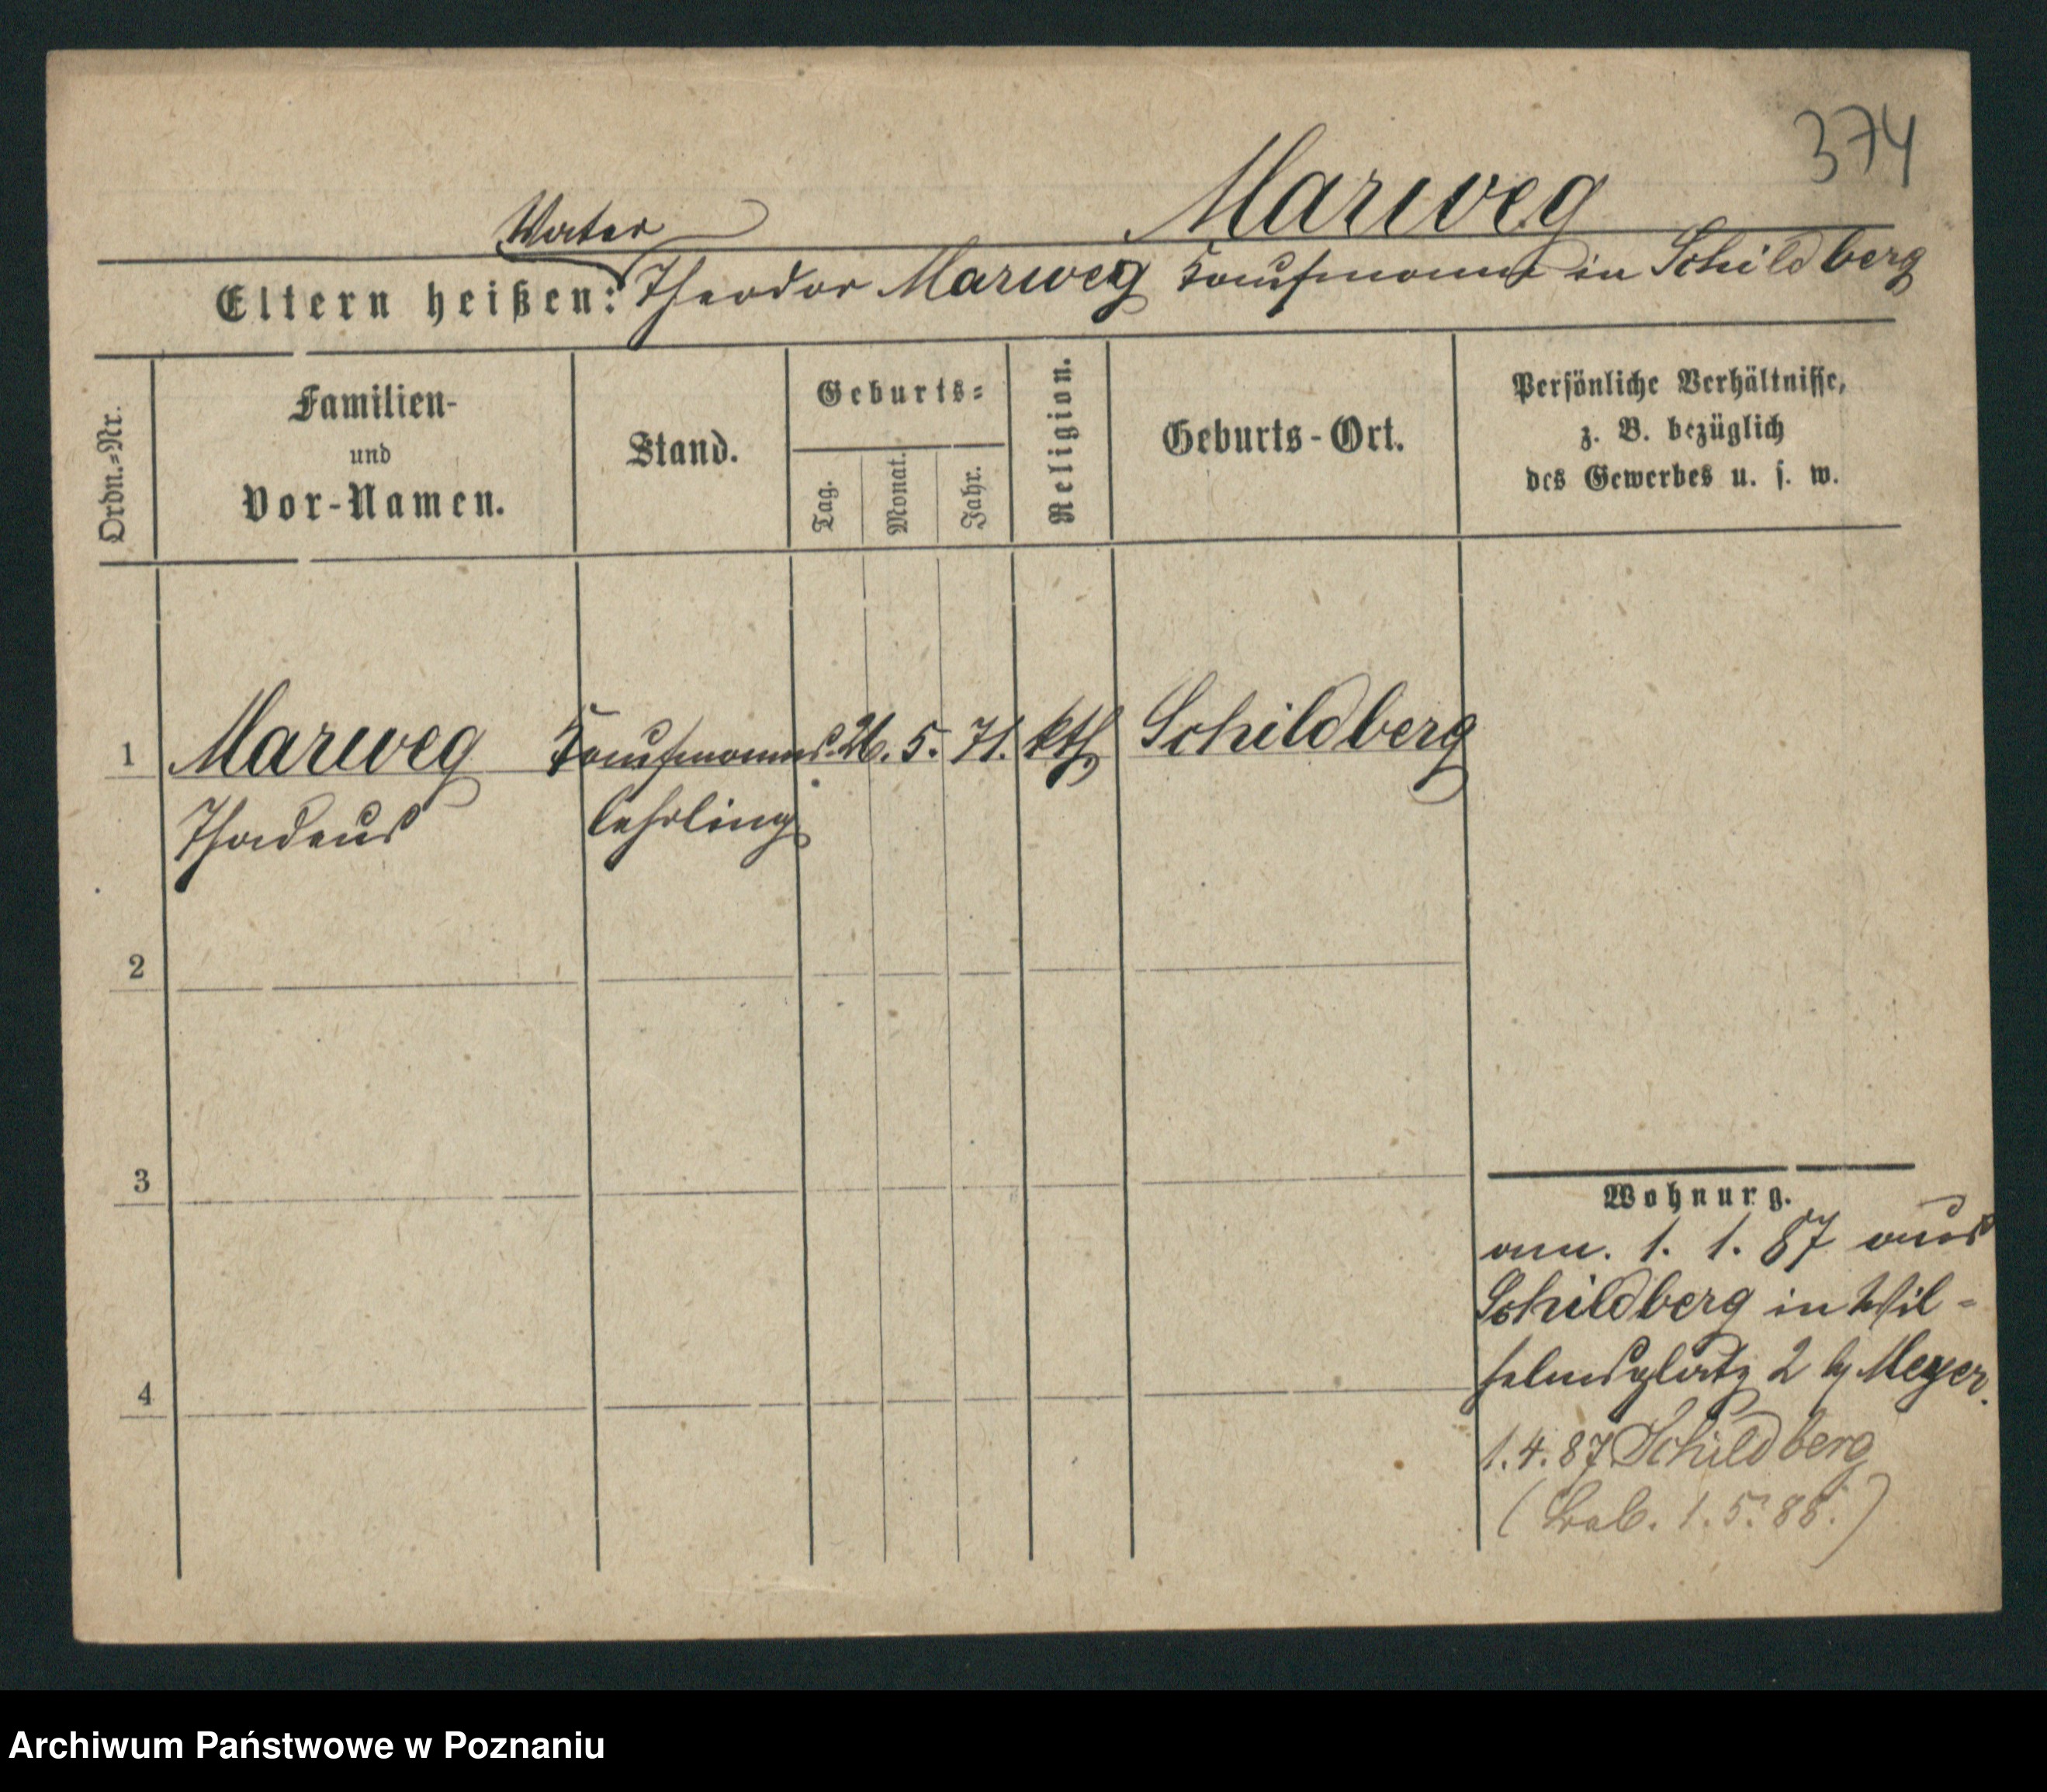 374
Marweg
Vater
Eltern heißen: Theodor Marweg Kaufmann in Schildberg
Ordn.=Nr.
Familien-
und
Vor-Namen.
Stand.
Geburts=
Tag.
Monat.
Jahr.
Religion.
Geburts-Ort.
Persönliche Verhältnisse,
z. B. bezüglich
des Gewerbes u. s. w.
1 Marweg Kaufmanns 26. 5. 71. kth Schildberg
Thadeus lehrling
2
3
4
Wohnung.
am. 1. 1. 87 aus
Schildberg in Wil-
helmsplatz 2 b Meyer.
1.4.87 Schildberg
( 1.5.88.)
Archiwum Państwowe w Poznaniu